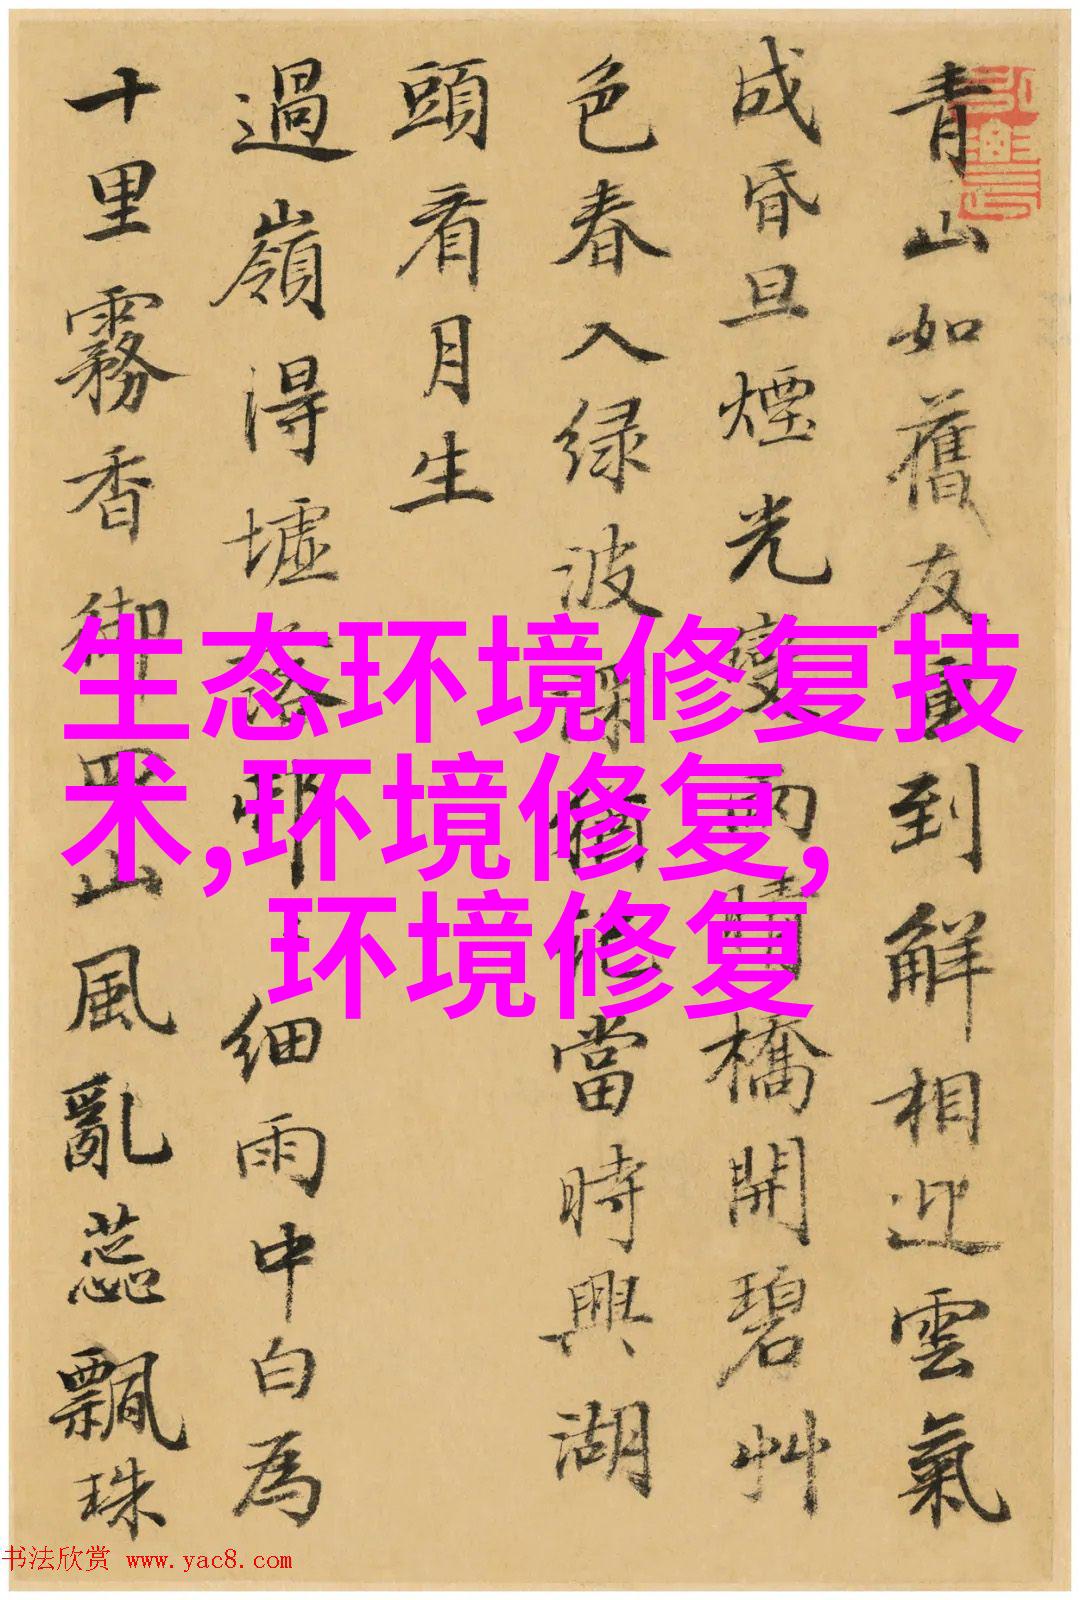 青山如舊友重到解相迎雲氣
成昏旦煙光變雨晴橋開碧艸
色春入绿波深猶當時興湖
頭看月生
過嶺得墟落細雨中白為
十里霧香御山風亂蕊飄珠
生态环境修复技
术,环境修复,
环境修复
书法欣赏 www.yac8.com